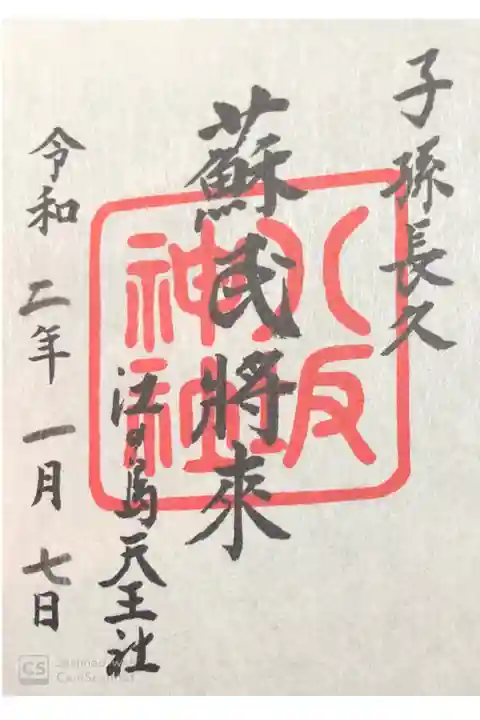 子孫長久
蘇民将來
八坂神社
江の島天王社
令和二年一月七日
CS Scanned with
CamScanner